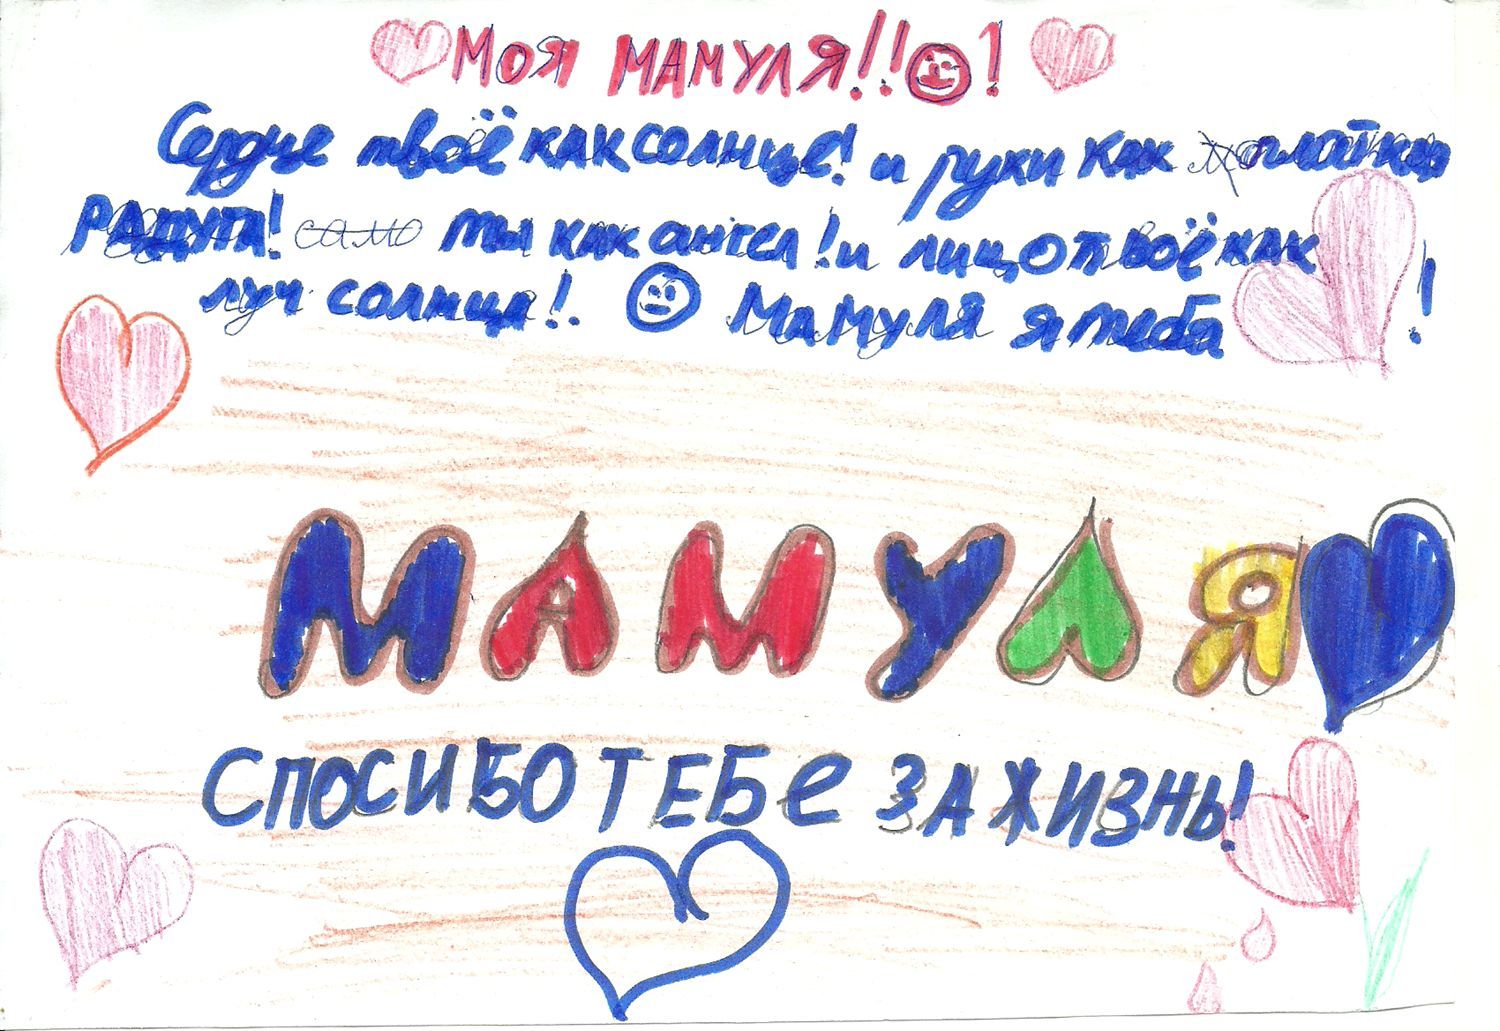 Моя МАМУЛЯ!!!
Сердце твоё как солнце! и руки как плотная
РАДУГА! само ты как ангел! и лицо твоё как
луч солнца!. Мамуля я тебя !
МАМУЛЯ
СПОСИБО ТЕБЕ ЗА ЖИЗНЬ!